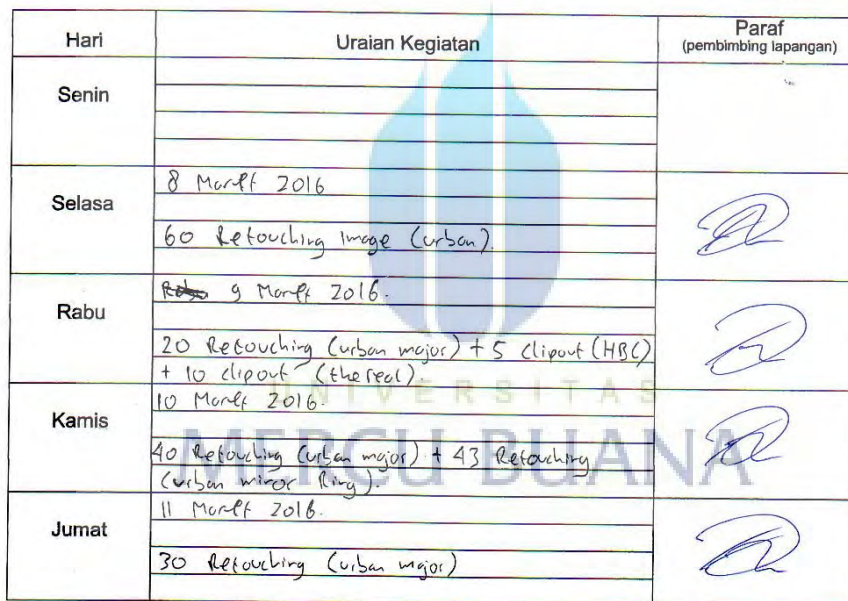 Hari Uraian Kegiatan Paraf
(pembimbing lapangan)
Senin
Selasa
8 Maret 2016
60 Retouching Image (urban).
Rabu
9 Maret 2016.
20 Retouching (urban major) + 5 clipout (HBC)
+ 10 clipout (thereal)
Kamis
10 Maret 2016.
40 Retouching (urban major) + 43 Retouching
(urban minor Ring).
Jumat
11 Maret 2016.
30 Retouching (urban major)
UNIVERSITAS
MERCU BUANA